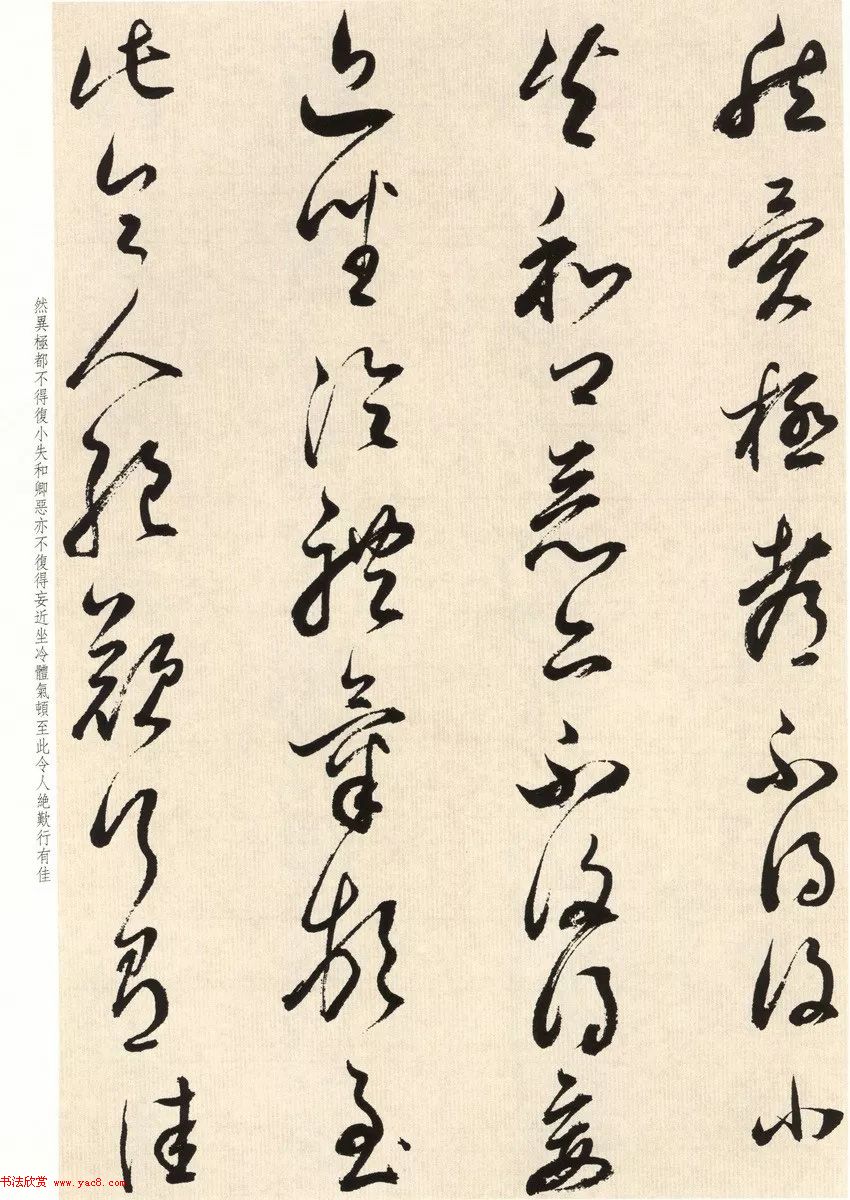 然異極都不得復小
失和卿惡亦不復得妄
近坐冷體氣頓至
此令人絶歎行有佳
然異極都不得復小失和卿惡亦不復得妄近坐冷體氣頓至此令人絶歎行有佳
书法欣赏 www.yac8.com